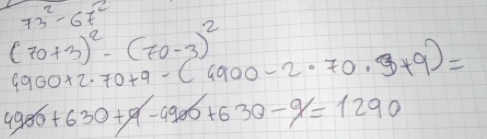 73² - 67²
(70+3)² - (70-3)²
4900+2·70+9 - (4900-2·70·3+9)=
4900+630+9-4900+630-9=1290